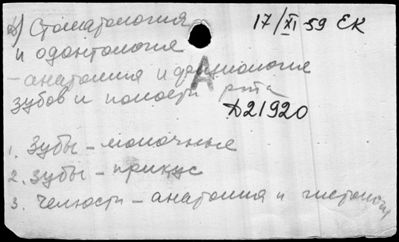 б) Стоматология
и одонтология
17/XI 59 ЕК
- анатомия и физиология
зубов и полости рта
А
Д21920
1. Зубы - молочные
2. Зубы - прикус
3. Челюсти - анатомия и гистология